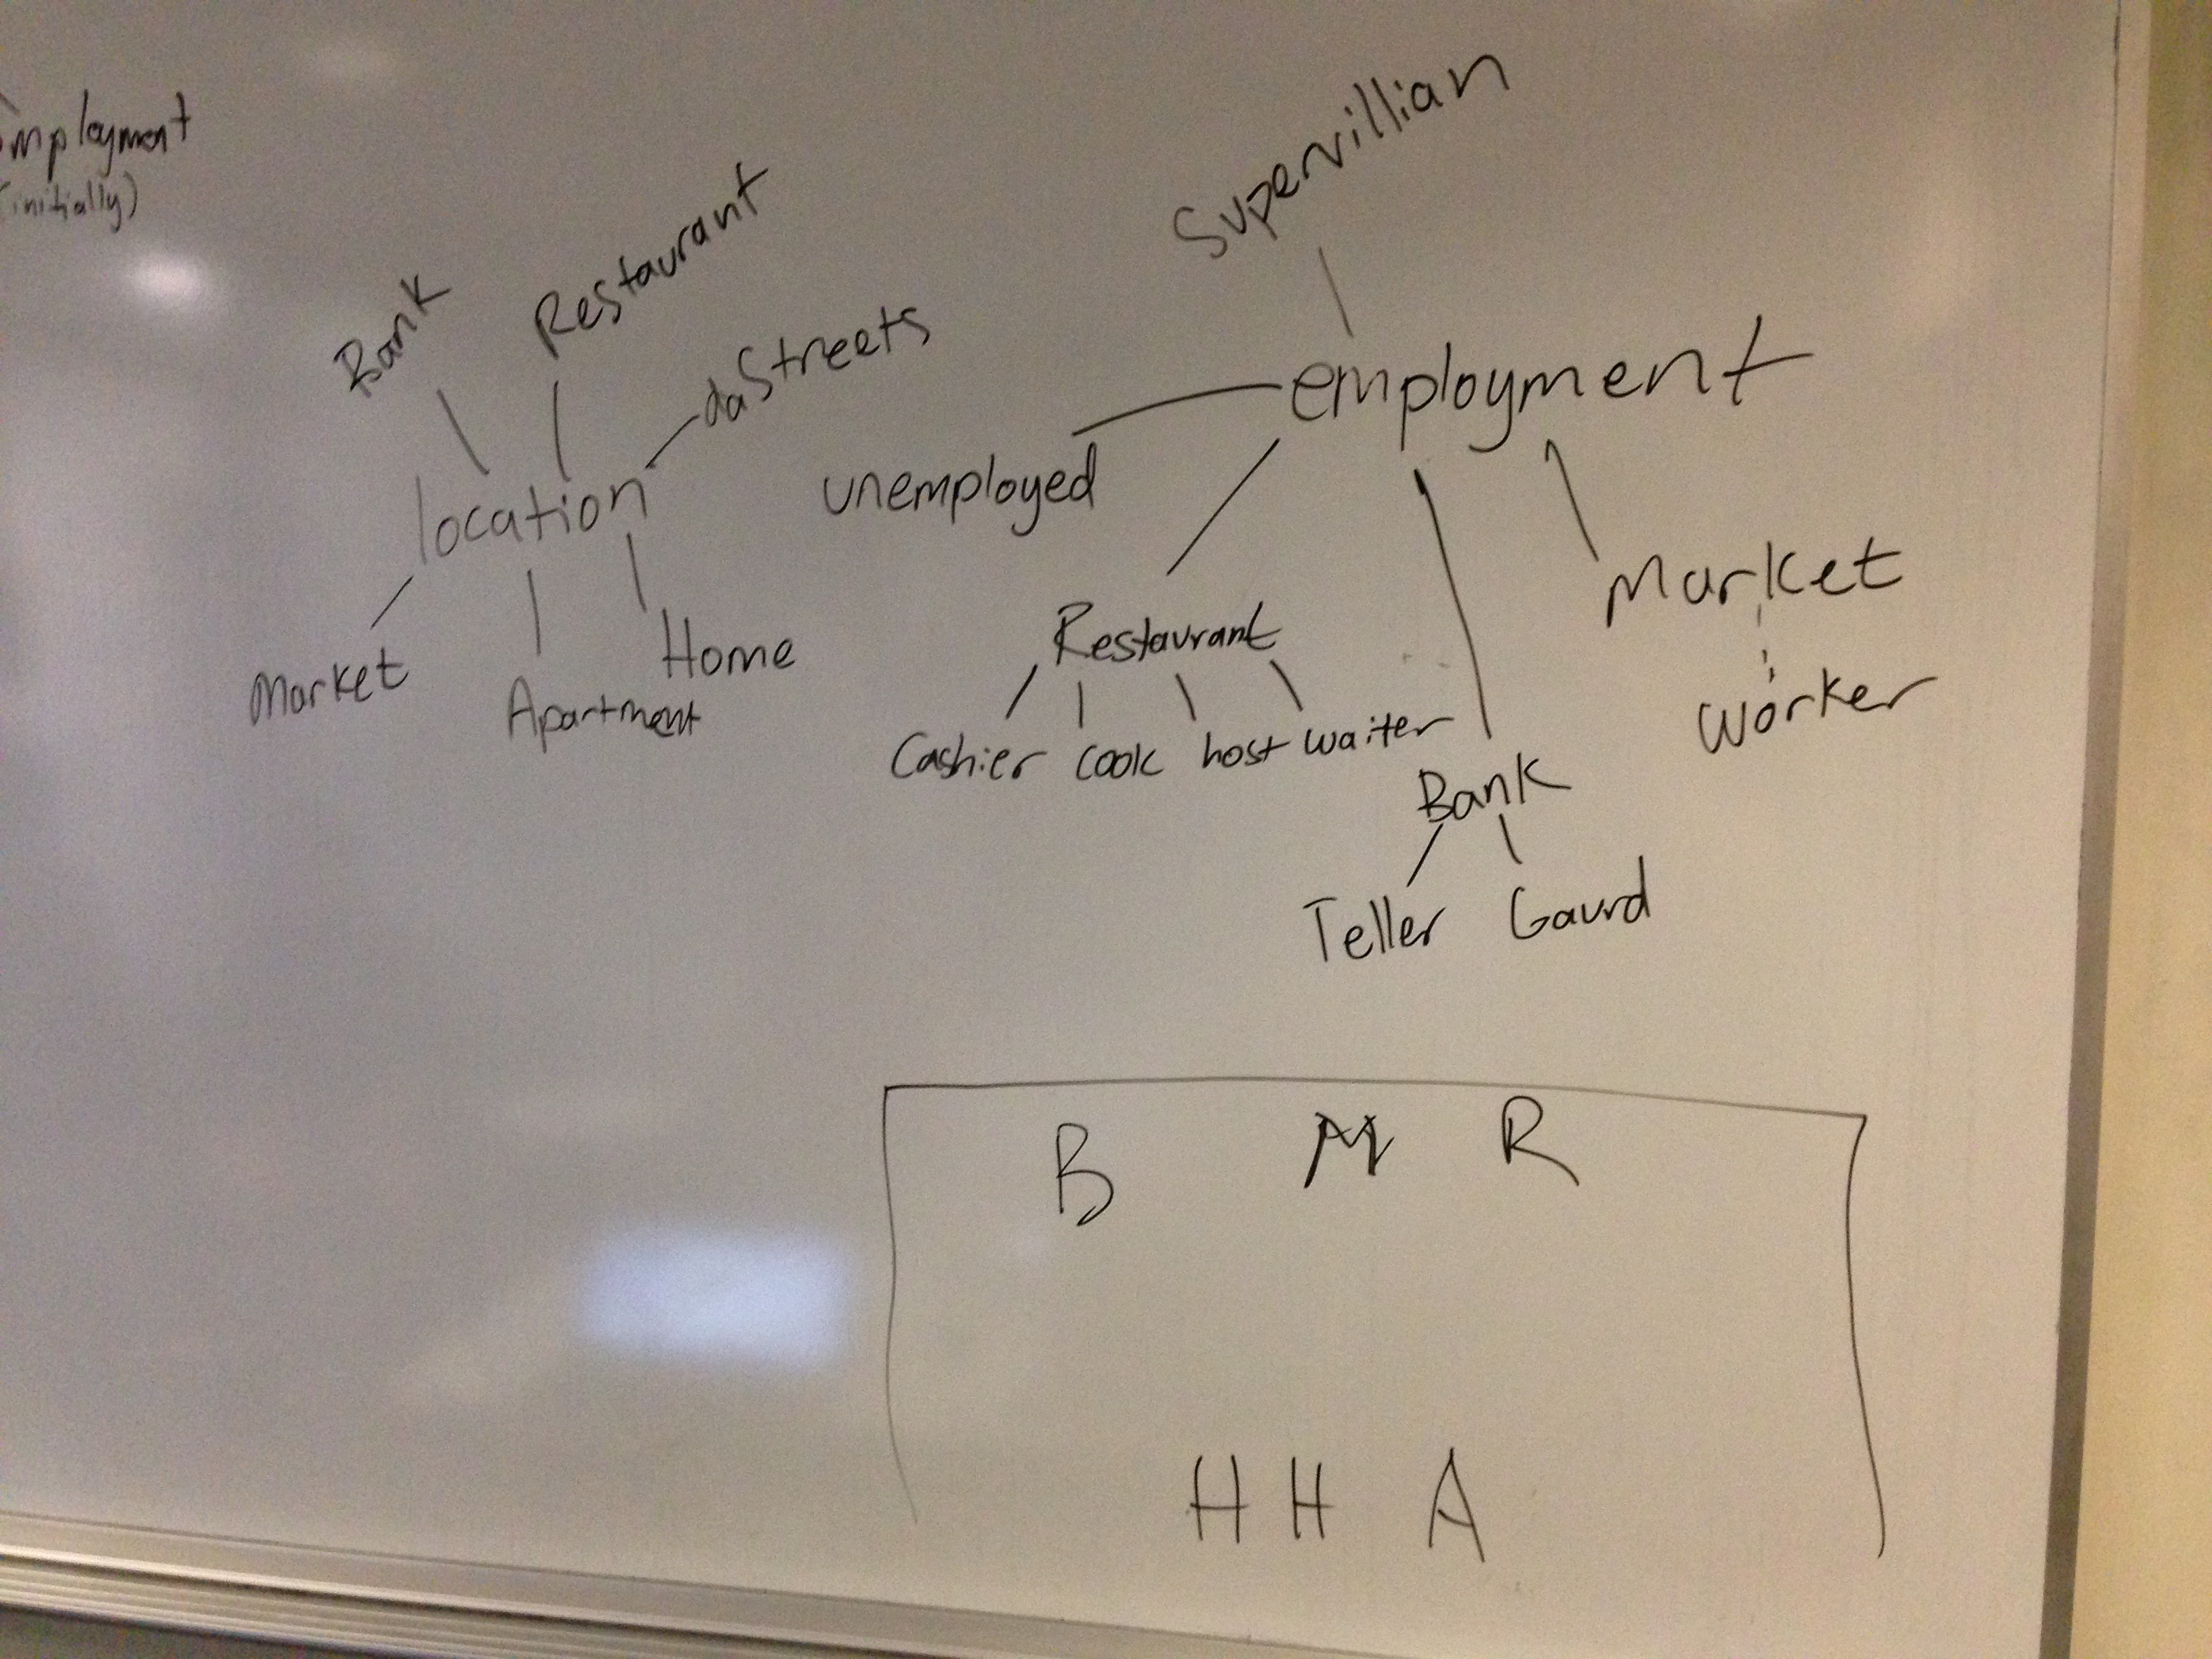 mployment
(initially)
Bank
Restaurant
daStreets
location
Market
Apartment
Home
Supervillian
employment
unemployed
Restaurant
Cashier cook host waiter
Bank
Teller Gaurd
Market
worker
B M R
H H A